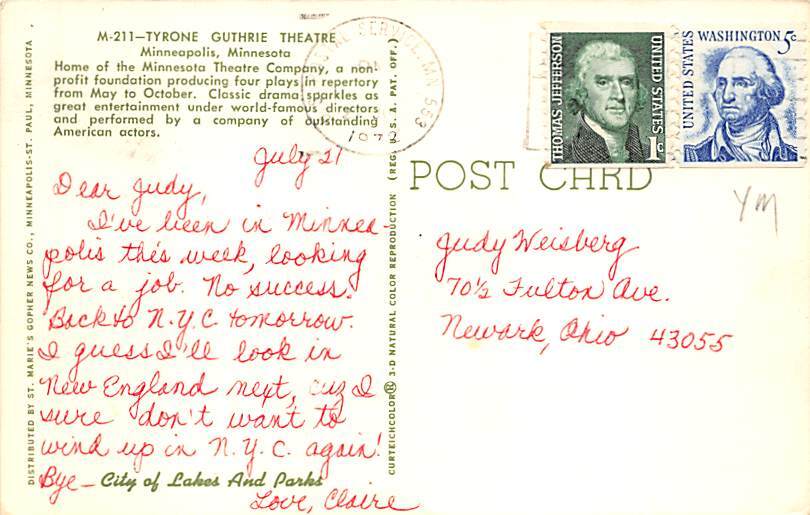 M-211—TYRONE GUTHRIE THEATRE
Minneapolis, Minnesota
Home of the Minnesota Theatre Company, a non-
profit foundation producing four plays in repertory
from May to October. Classic drama sparkles as
great entertainment under world-famous directors
and performed by a company of outstanding
American actors.
July 21
Dear Judy,
I've been in Minnea-
polis this week, looking
for a job. No success.
Back to N.Y.C tomorrow.
I guess I'll look in
New England next, cuz I
sure don't want to
wind up in N.Y.C. again!
Bye—
City of Lakes And Parks
Love, Claire
DISTRIBUTED BY ST. MARIE'S GOPHER NEWS CO., MINNEAPOLIS-ST. PAUL, MINNESOTA
CURTEICHCOLOR® 3-D NATURAL COLOR REPRODUCTION (REG. U. S. A. PAT. OFF.)
SERVICE, MN 553
1972
THOMAS JEFFERSON
UNITED STATES
1c
UNITED STATES
WASHINGTON 5c
POST CARD
YM
Judy Weisberg
70½ Fulton Ave.
Newark, Ohio 43055